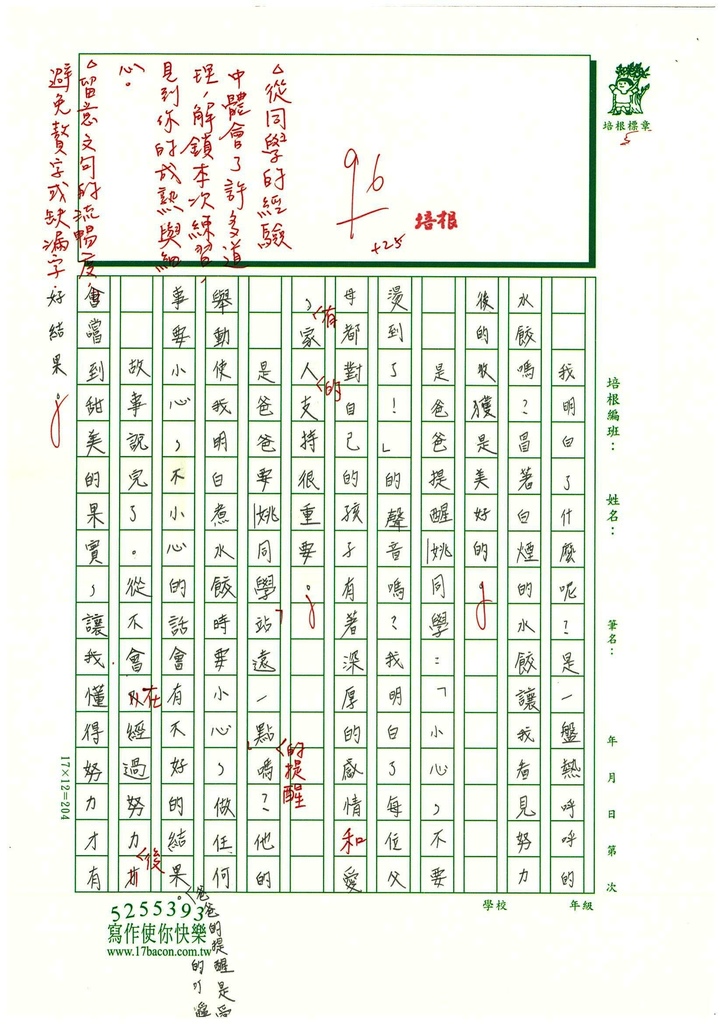 培根標章
5
96
+25
培根
△從同學的經驗
中體會了許多道
理,解鎖本次練習,
見到你的成熟與細
心。
△留意文句的流暢度,
避免贅字或缺漏字
培根編班：
姓名：
筆名：
年 月 日 第 次
我明白了什麼呢？是一盤熱呼呼的
水餃嗎？冒著白煙的水餃讓我看見努力
後的收獲是美好的
是爸爸提醒姚同學：「小心，不要
燙到了！」的聲音嗎？我明白了每位父
母都對自己的孩子有著深厚的感情和愛
，有家人的支持很重要
是爸爸要姚同學站遠一點的提醒嗎？他的
舉動使我明白煮水餃時要小心，做任何
事要小心，不小心的話會有不好的結果。
爸爸的提醒是
故事說完了。從不會 在經過努力後
會嚐到甜美的果實，讓我懂得努力才有
好結果。
17×12=204
學校 年級
5255393
寫作使你快樂
www.17bacon.com.tw